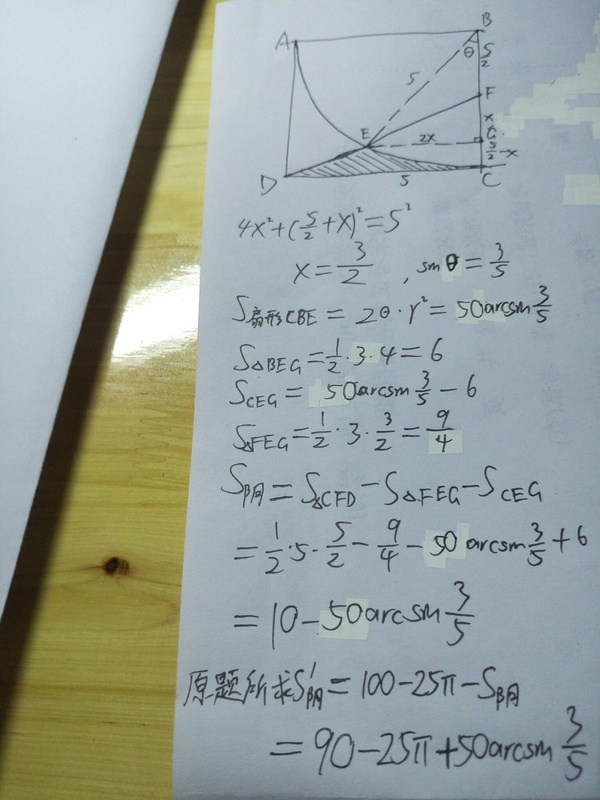 A
B
θ
5/2
5
F
x
E
2x
G
5/2-x
D
5
C
4x²+(5/2+x)²=5²
x=3/2, sinθ=3/5
S扇形CBE=2θ·r²=50arcsin3/5
S△BEG=1/2·3·4=6
SCEG=50arcsin3/5-6
S△FEG=1/2·3·3/2=9/4
S阴=S△CFD-S△FEG-SCEG
=1/2·5·5/2-9/4-50arcsin3/5+6
=10-50arcsin3/5
原题所求S'阴=100-25π-S阴
=90-25π+50arcsin3/5